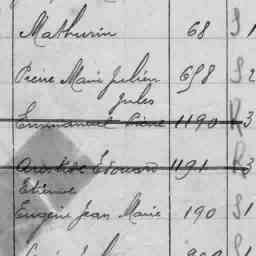 Mathurin 68 S 1
Pierre Marie Julien 658 S 2
Jules
Emmanuel Pierre 1190 R 3
Aristide Édouard 1191 R 3
Etienne
Eugène Jean Marie 190 S 1